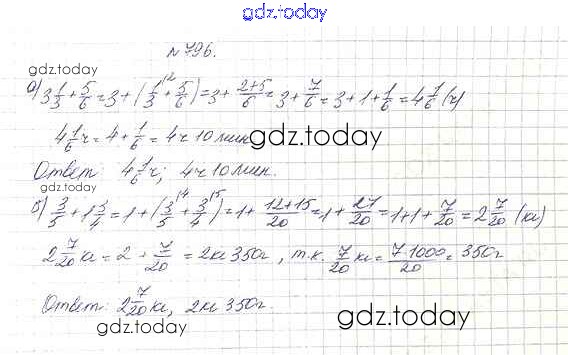 gdz.today
№796.
gdz.today
а) 3 1/3 + 5/6 = 3 + (1/3 \2 + 5/6) = 3 + 2+5/6 = 3 + 7/6 = 3 + 1 + 1/6 = 4 1/6 (ч)
4 1/6 ч = 4 + 1/6 = 4ч 10 мин
gdz.today
Ответ: 4 1/6 ч; 4ч 10 мин.
gdz.today
б) 3/5 + 1 3/4 = 1 + (3/5 \4 + 3/4 \5) = 1 + 12+15/20 = 1 + 27/20 = 1+1+ 7/20 = 2 7/20 (кг)
2 7/20 кг = 2 + 7/20 = 2кг 350г, т.к. 7/20 кг = 7·1000/20 = 350г
Ответ: 2 7/20 кг, 2кг 350г.
gdz.today
gdz.today